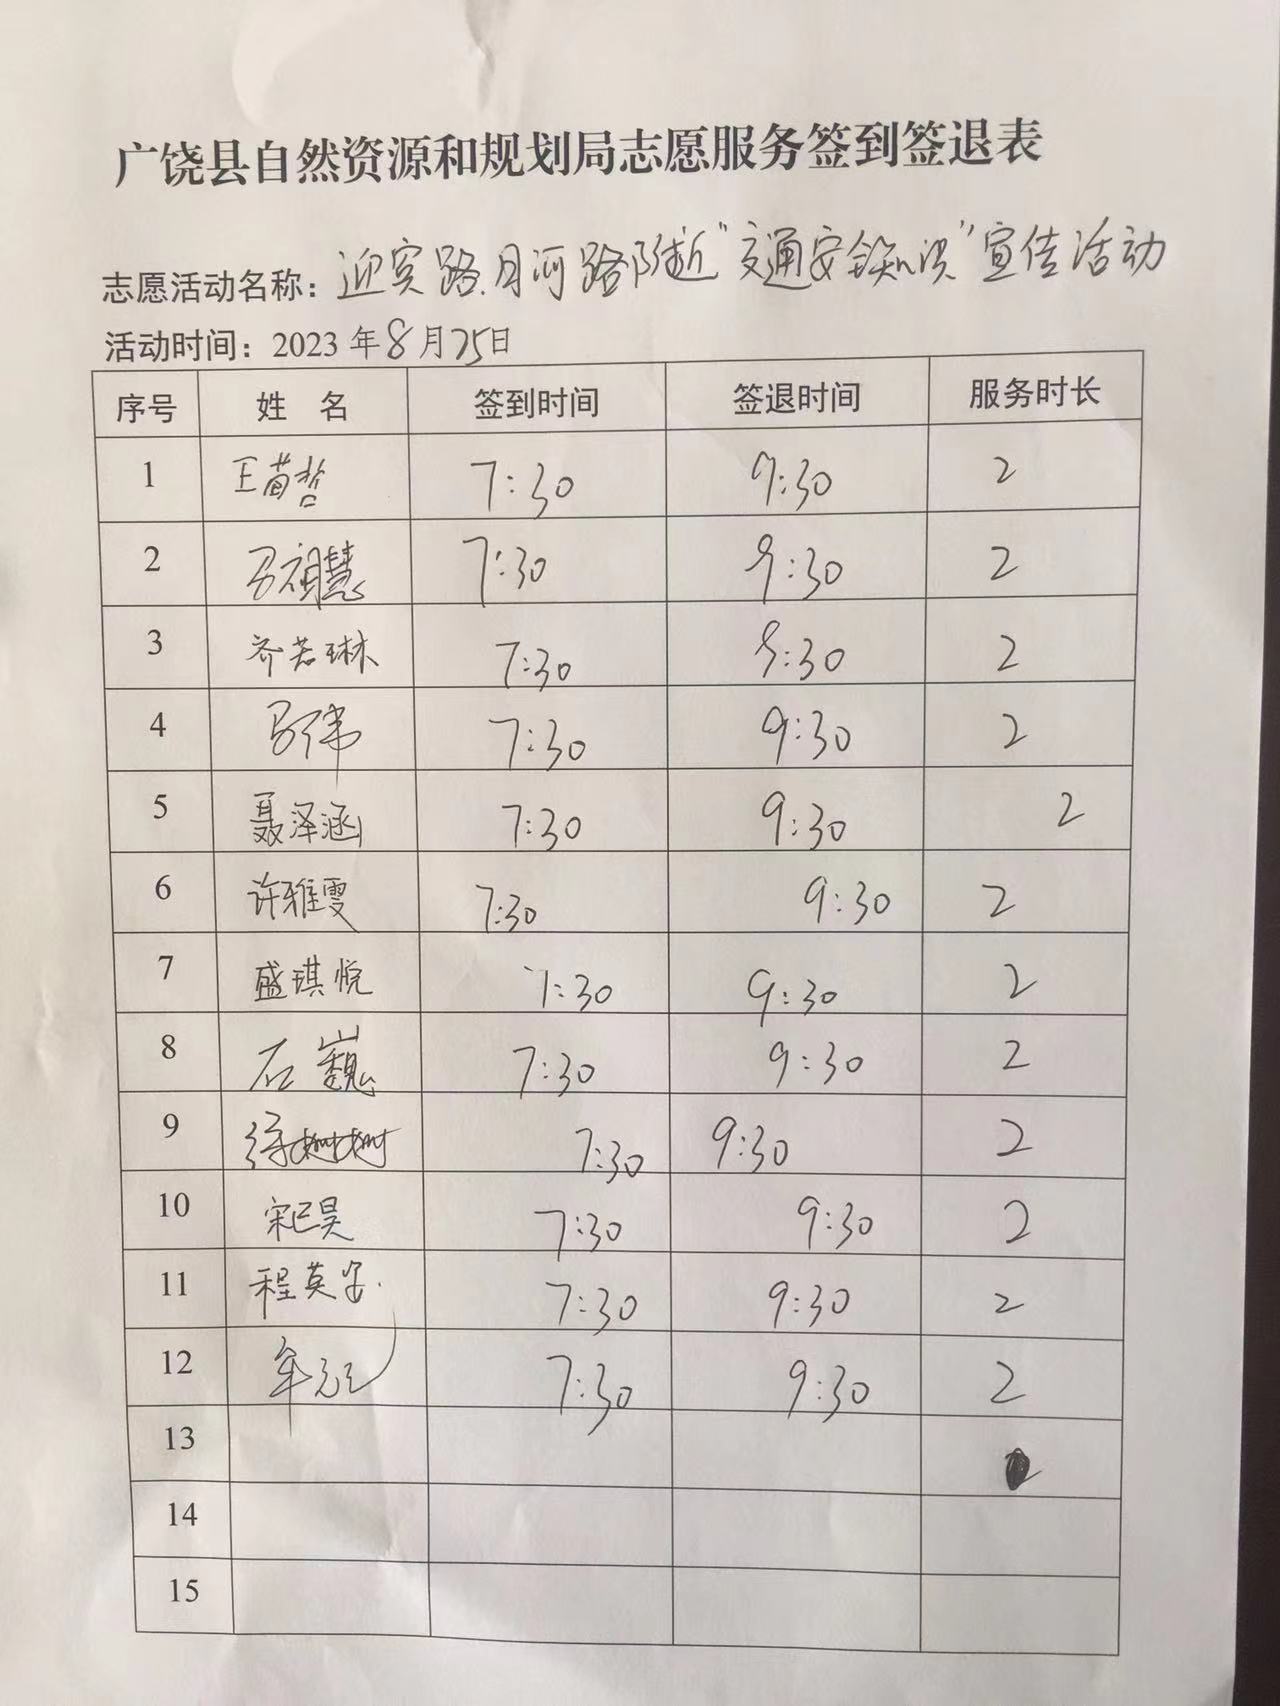 广饶县自然资源和规划局志愿服务签到签退表
志愿活动名称：迎宾路、月河路附近“交通安全知识”宣传活动
活动时间：2023年8月25日
序号 姓 名 签到时间 签退时间 服务时长
1 王苗哲 7:30 9:30 2
2 马祖慧 7:30 9:30 2
3 齐若琳 7:30 9:30 2
4 马伟 7:30 9:30 2
5 聂泽涵 7:30 9:30 2
6 许雅雯 7:30 9:30 2
7 盛琪悦 7:30 9:30 2
8 石巍 7:30 9:30 2
9 徐树树 7:30 9:30 2
10 宋己昊 7:30 9:30 2
11 程英 7:30 9:30 2
12 7:30 9:30 2
13
14
15